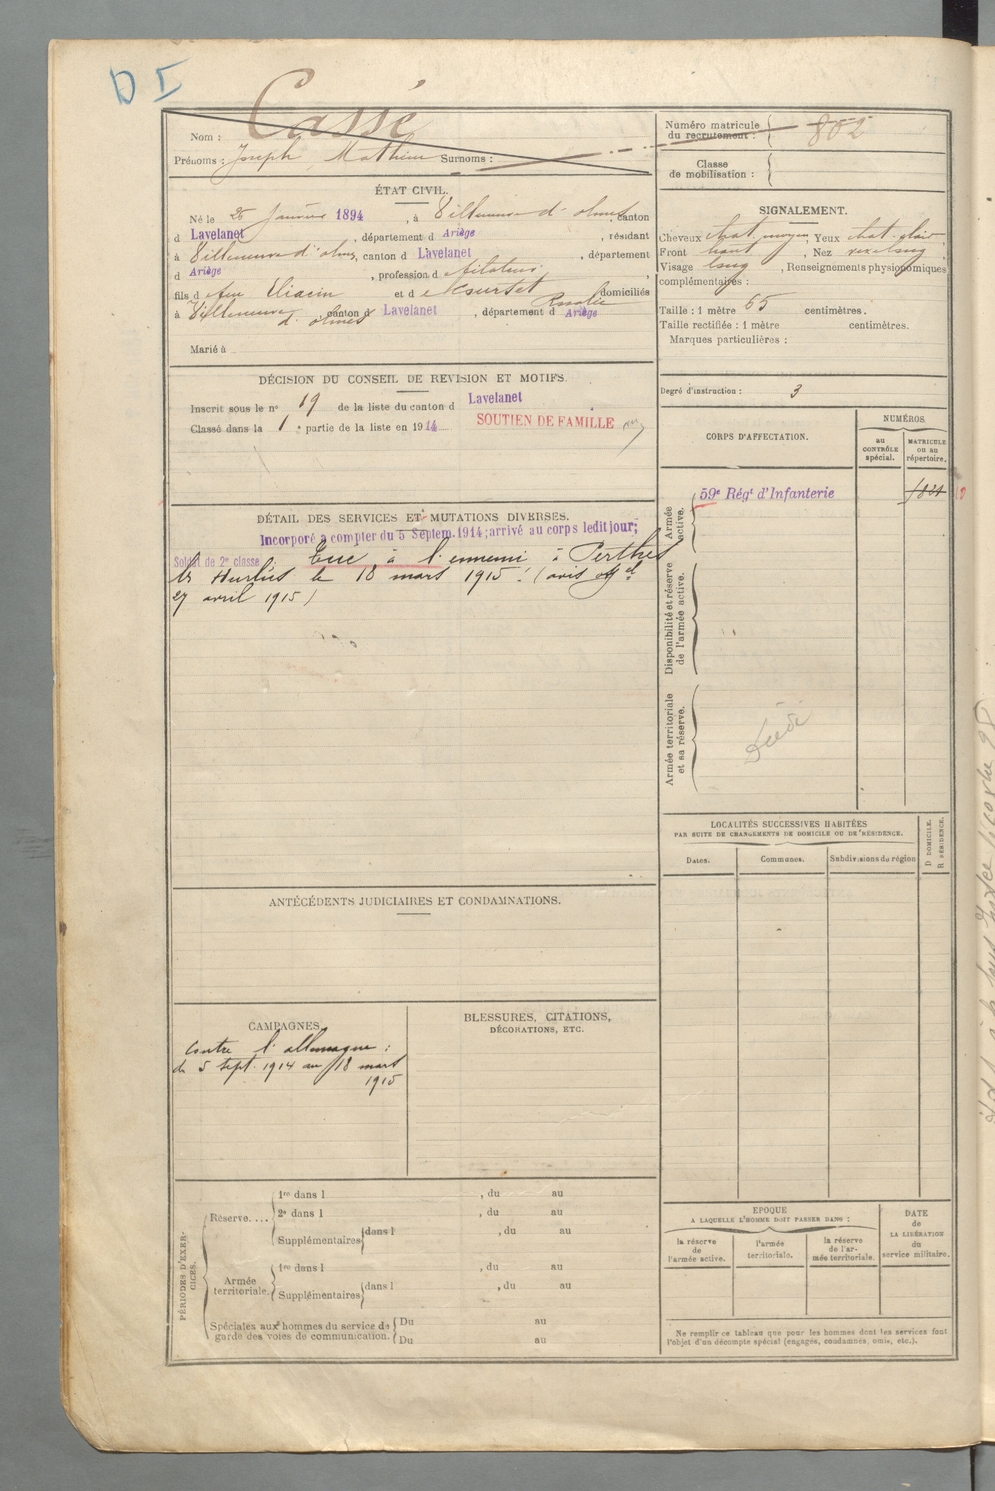 D I
Nom : Cassé
Prénoms : Joseph Mathieu Surnoms :
Numéro matricule du recrutement : 802
Classe de mobilisation :
ÉTAT CIVIL.
Né le 25 Janvier 1894, à Villeneuve d'olmes, canton
d Lavelanet, département d Ariège, résidant
à Villeneuve d'olmes, canton d Lavelanet, département
d Ariège, profession d fileteur
fils d feu Eliacin et d e Courtet Rosalie domiciliés
à Villeneuve d'olmes canton d Lavelanet, département d Ariège
Marié à
SIGNALEMENT.
Cheveux chat. moyen, Yeux chat. clair
Front haut, Nez
Visage long, Renseignements physionomiques
complémentaires :
Taille : 1 mètre 65 centimètres.
Taille rectifiée : 1 mètre centimètres.
Marques particulières :
Degré d'instruction : 3
DÉCISION DU CONSEIL DE REVISION ET MOTIFS.
Inscrit sous le n° 19 de la liste du canton d Lavelanet
Classé dans la 1e partie de la liste en 1914
SOUTIEN DE FAMILLE
DÉTAIL DES SERVICES ET MUTATIONS DIVERSES.
Incorporé à compter du 5 Septem. 1914; arrivé au corps ledit jour;
Soldat de 2e classe Tué à l'ennemi à Perthes
les Hurlus le 18 mars 1915. (avis off el
27 avril 1915)
CORPS D'AFFECTATION.
NUMÉROS
au CONTRÔLE spécial.
MATRICULE ou au répertoire.
Armée active.
59e Régt d'Infanterie
Disponibilité et réserve de l'armée active.
Armée territoriale et sa réserve.
LOCALITÉS SUCCESSIVES HABITÉES
PAR SUITE DE CHANGEMENTS DE DOMICILE OU DE RÉSIDENCE.
Dates.
Communes.
Subdivisions de région
D DOMICILE.
R RÉSIDENCE.
ANTÉCÉDENTS JUDICIAIRES ET CONDAMNATIONS.
CAMPAGNES
Contre l'allemagne :
du 5 sept. 1914 au 18 mars
1915
BLESSURES, CITATIONS,
DÉCORATIONS, ETC.
PÉRIODES D'EXERCICES.
Réserve....
1re dans l , du au
2e dans l , du au
Supplémentaires dans l , du au
Armée territoriale.
1re dans l , du au
Supplémentaires dans l , du au
Spéciales aux hommes du service de
garde des voies de communication.
Du au
Du au
ÉPOQUE
A LAQUELLE L'HOMME DOIT PASSER DANS :
la réserve de l'armée active.
l'armée territoriale.
la réserve de l'armée territoriale.
DATE de LA LIBÉRATION du service militaire.
Ne remplir ce tableau que pour les hommes dont les services font
l'objet d'un décompte spécial (engagés, condamnés, omis, etc.).